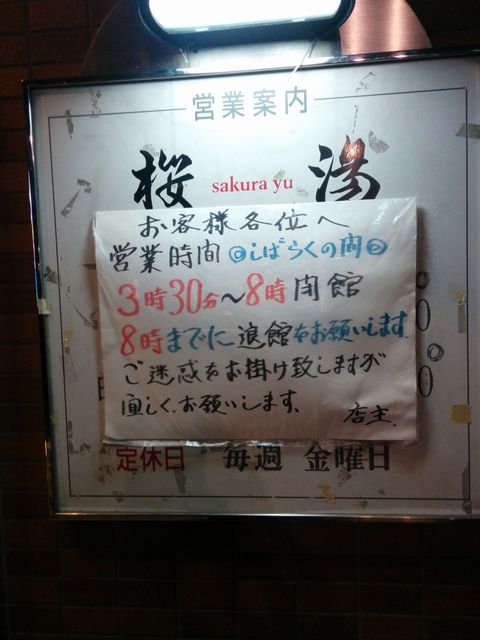 営業案内
桜 sakura yu 湯
お客様各位へ
営業時間 しばらくの間
3時30分～8時閉館
8時までに退館をお願いします
ご迷惑をお掛け致しますが
宜しくお願いします。
店主.
定休日 毎週 金曜日